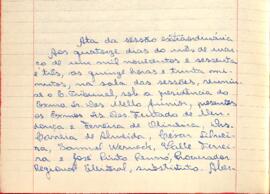 Ata da sessão extraordinária
Aos quatorze dias do mês de mar
ço de um mil novecentos e sessenta
e três, às quinze horas e trinta mi-
nutos, na sala das sessões, reuniu-
se o E. Tribunal, sob a presidência do
Exmo Sr. Des. Mello Junior, presentes
os Exmos Srs. Des. Furtado de Men-
donça e Ferreira de Oliveira, Drs.
de Almeida, Cesar Silvei-
ra, Samuel Werneck, Valle Ferrei-
ra e José Pinto Renno, Procurador
Regional Eleitoral, substituto.